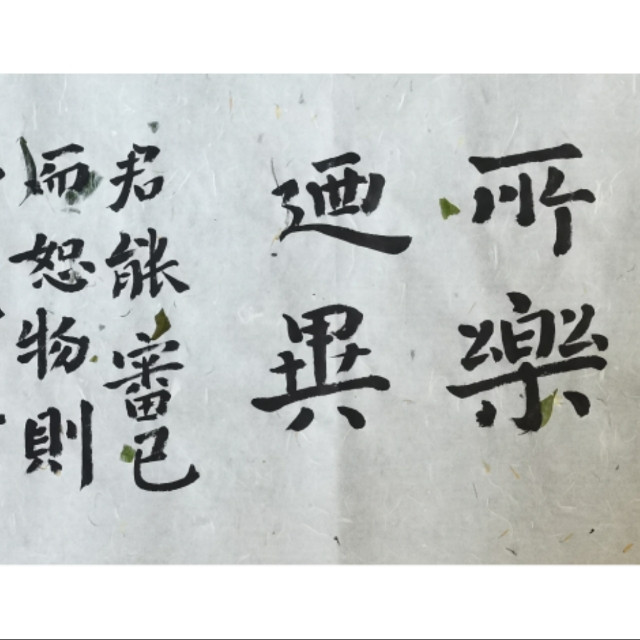 所樂
迺異
君能審己
而恕物則